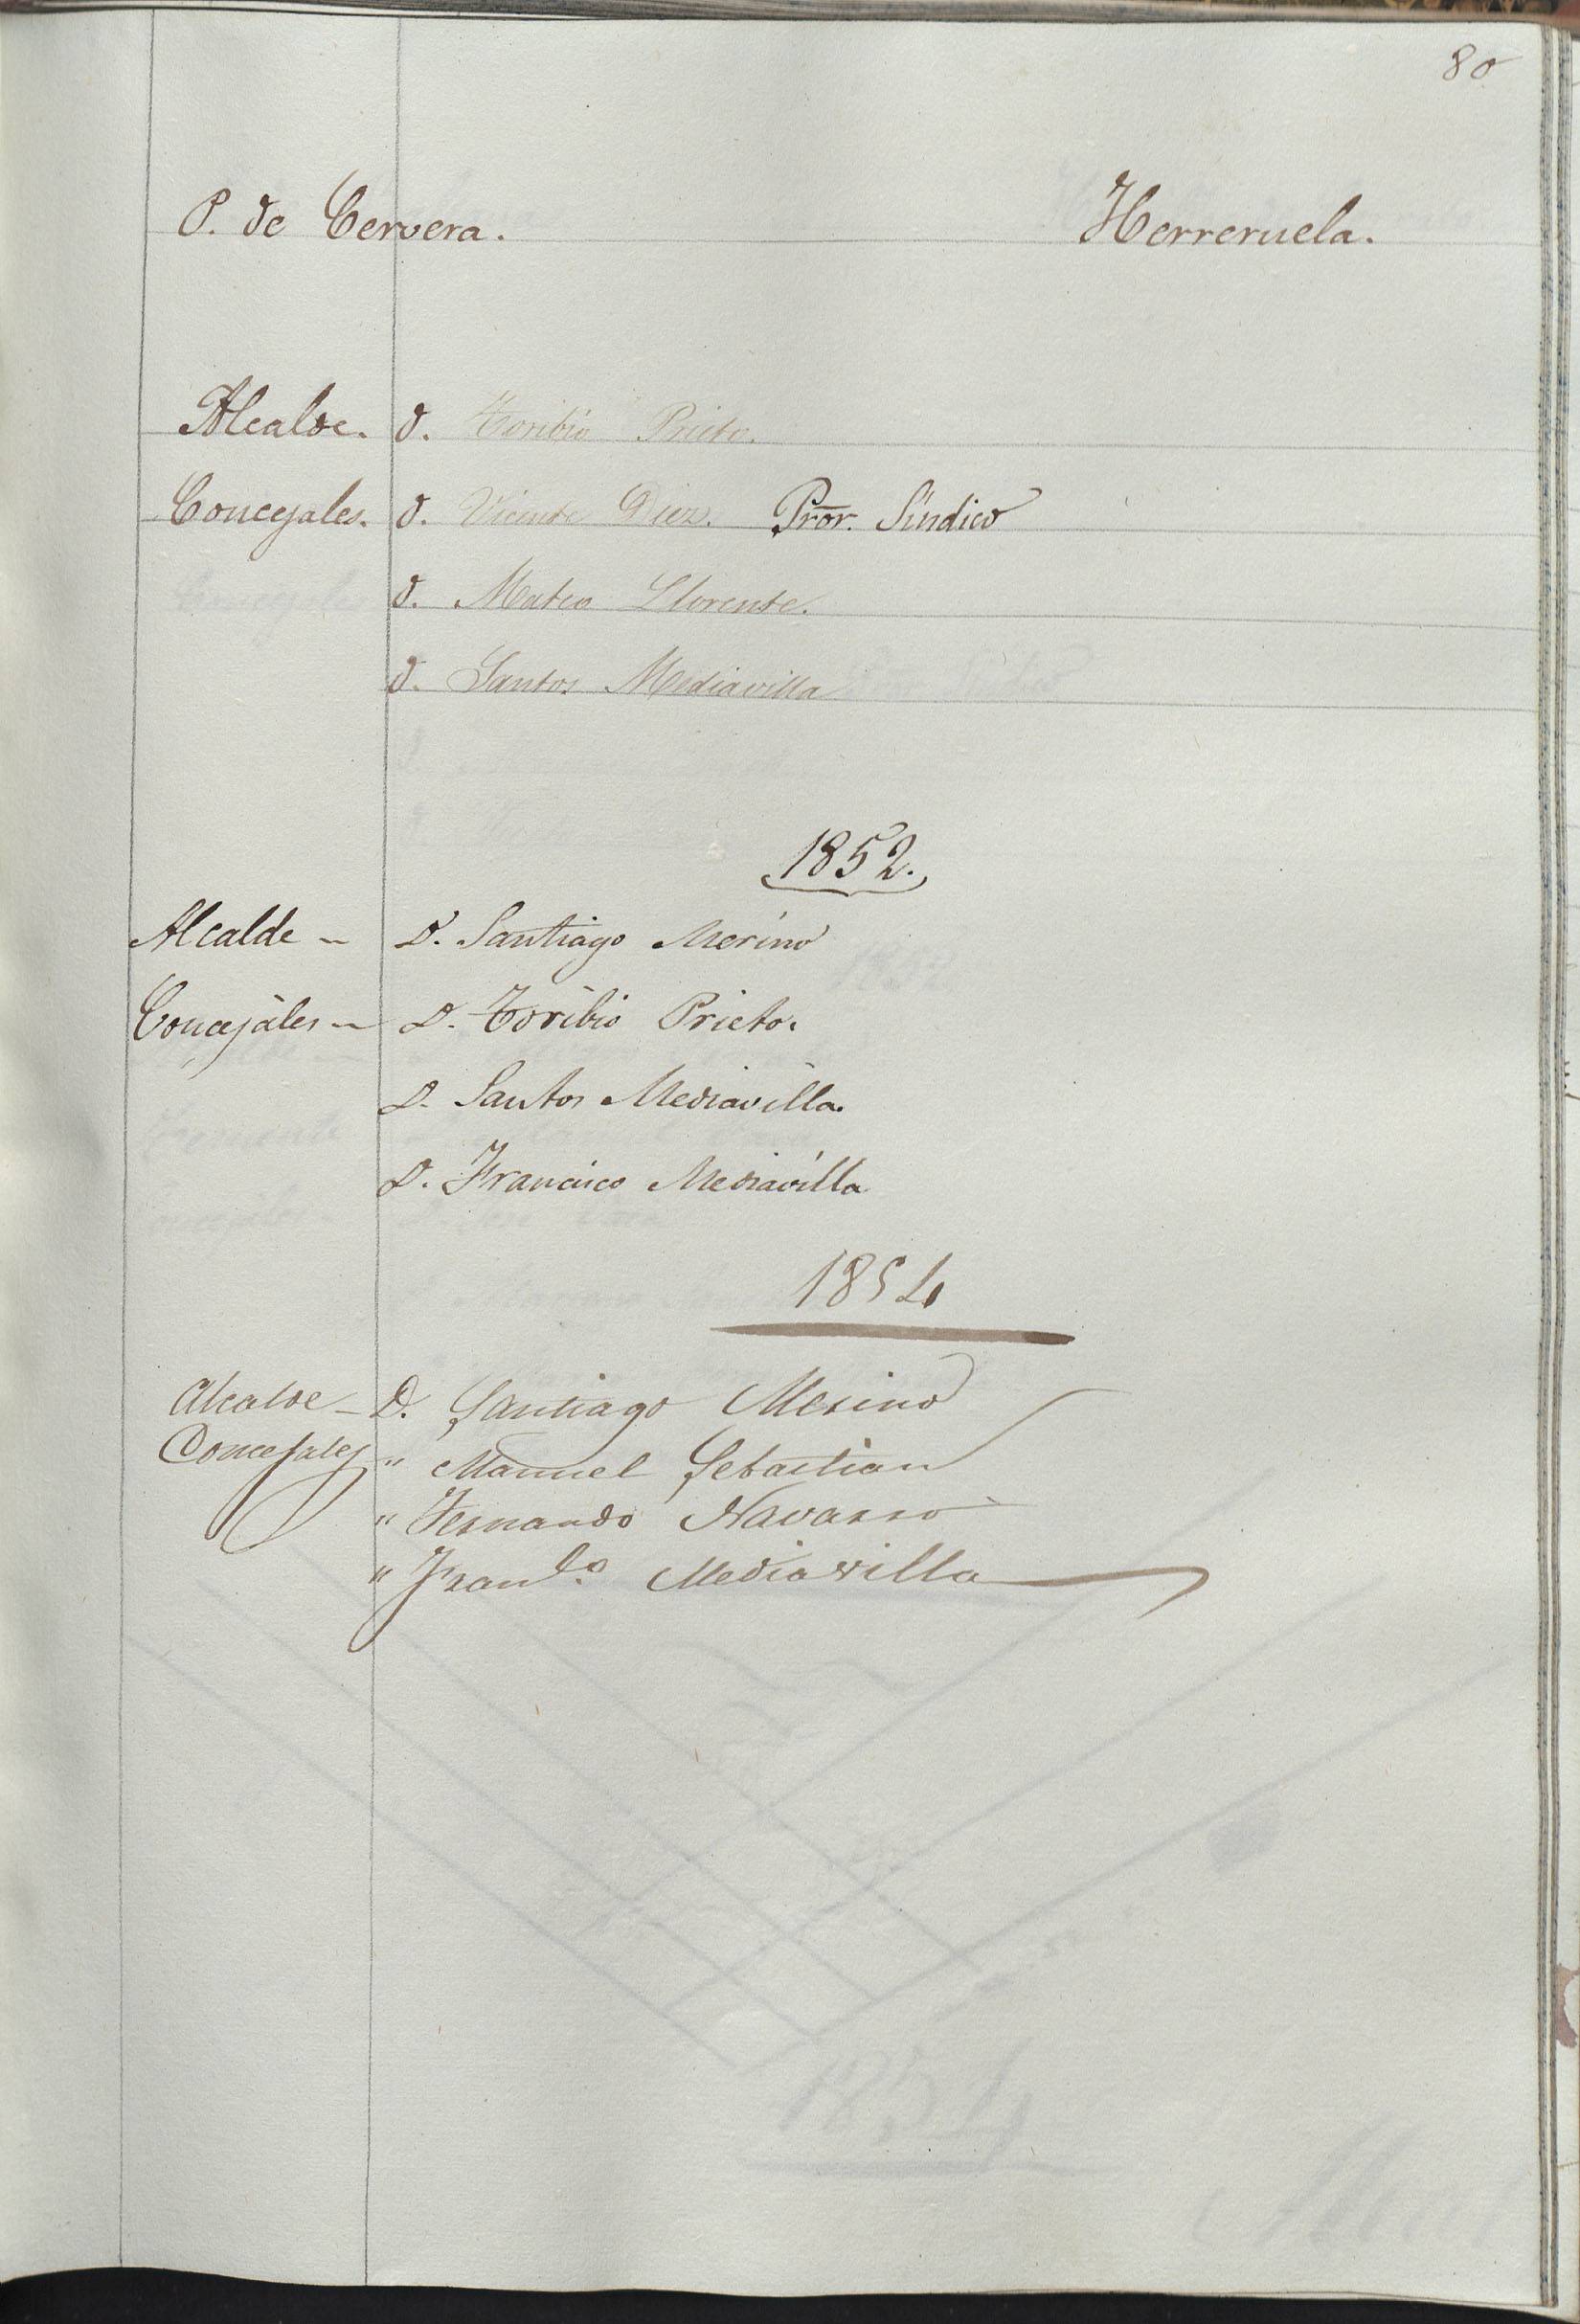 80
P. de Cervera. Herreruela.
Alcalde. D. Toribio Prieto.
Concejales. D. Vicente Diez. Pror. Síndico
D. Mateo Llorente.
D. Santos Mediavilla
1852.
Alcalde - D. Santiago Merino
Concejáles - D. Toribio Prieto.
D. Santos Mediavilla.
D. Francisco Mediavilla
1854
Alcalde - D. Santiago Merino
Concejales " Manuel Sebastian
" Fernando Navarro
" Franco. Mediavilla